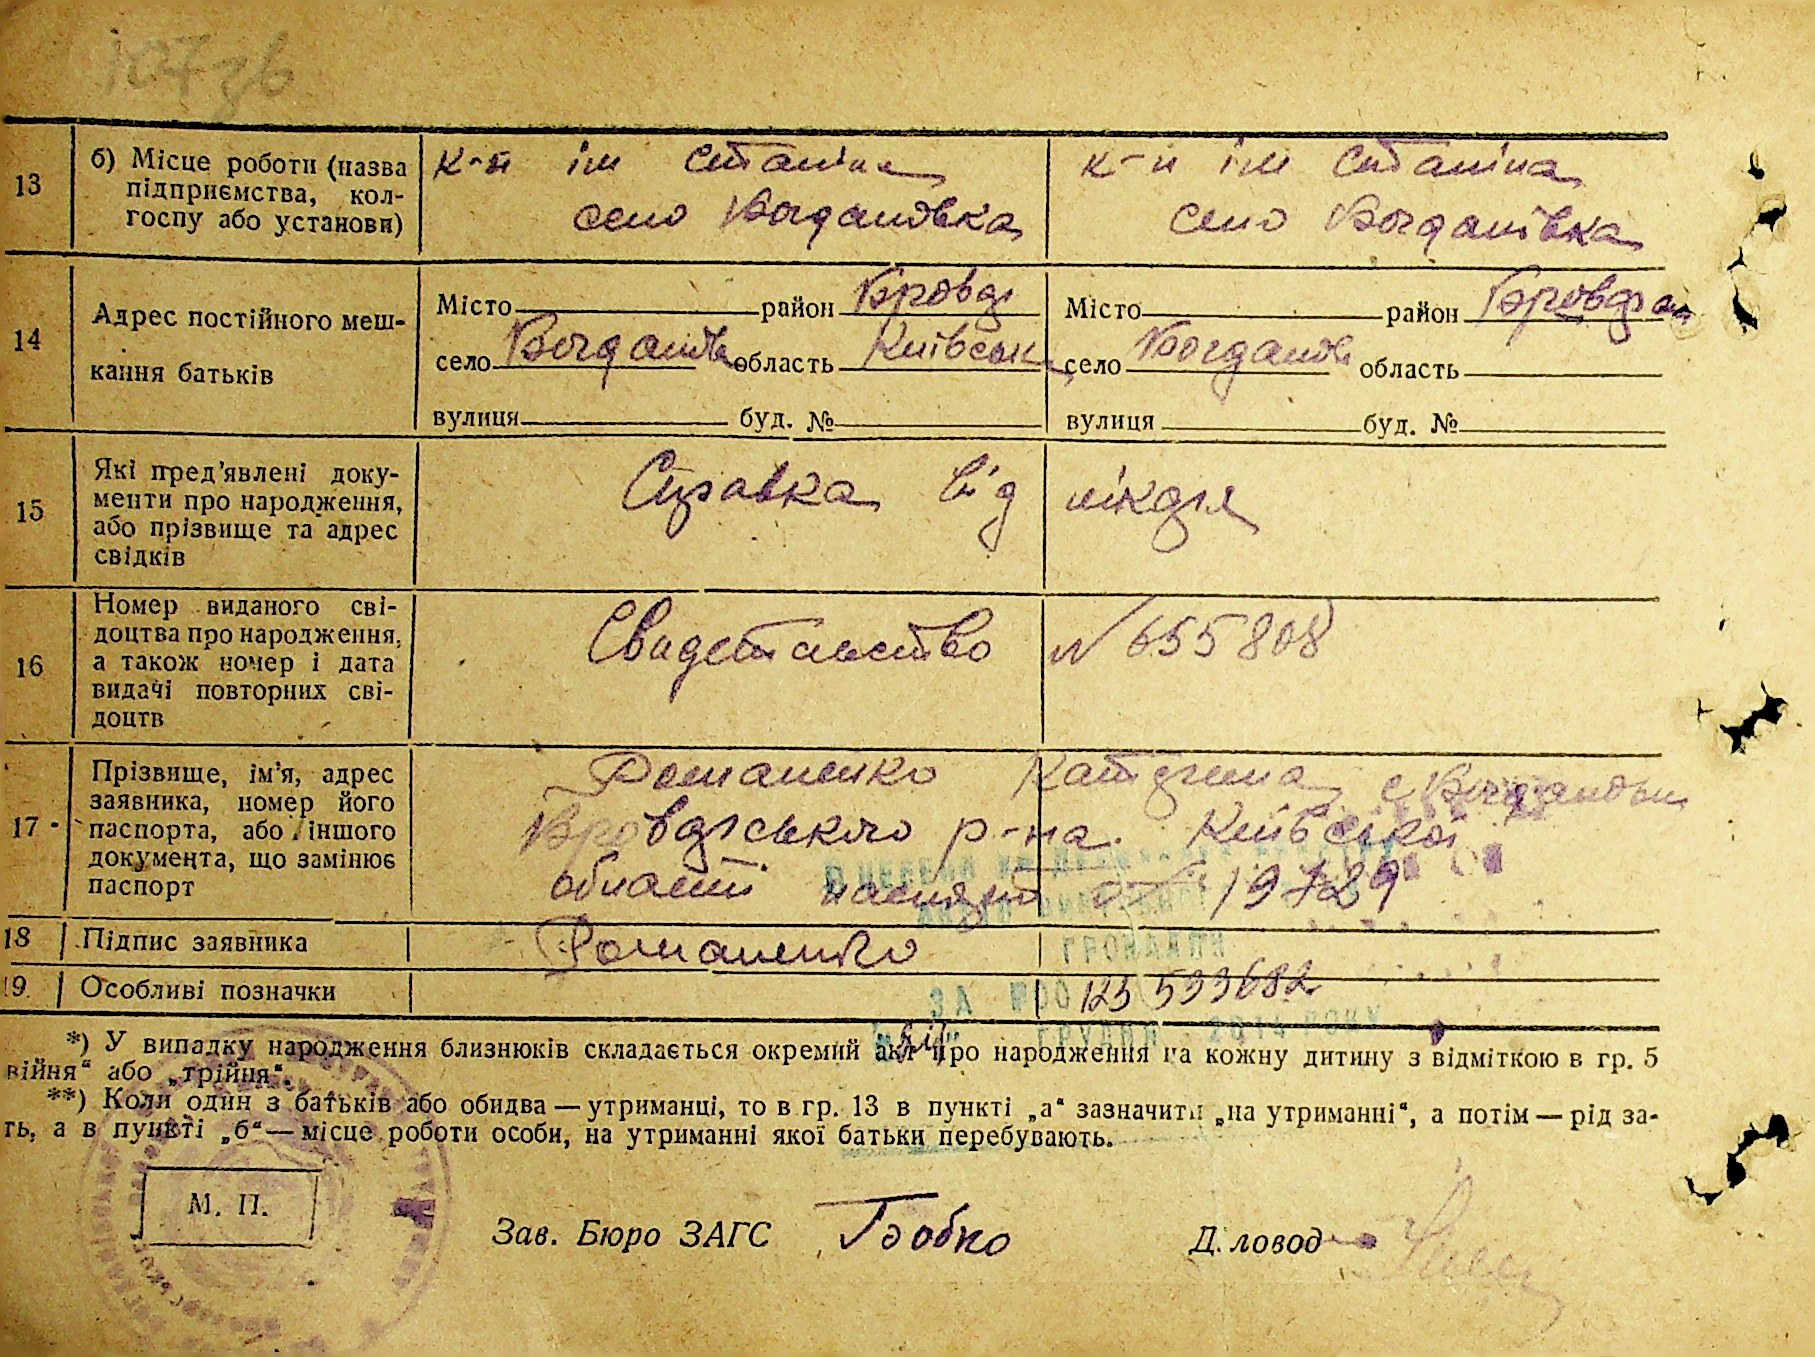 107 зв
13
б) Місце роботи (назва підприємства, колгоспу або установи)
к-п ім Сталіна
село Богдановка
к-п ім Сталіна
село Богданівка
14
Адрес постійного мешкання батьків
Місто район Бровар
село Богданів область Київськ
вулиця буд. №
Місто район Броварсь
село Богданів область
вулиця буд. №
15
Які пред'явлені документи про народження, або прізвище та адрес свідків
Справка від лікаря
16
Номер виданого свідоцтва про народження, а також номер і дата видачі повторних свідоцтв
Свидетельство № 655808
17
Прізвище, ім'я, адрес заявника, номер його паспорта, або іншого документа, що замінює паспорт
Романенко Катерина с Богданівки
Броварського р-на Київської
області паспорт
18
Підпис заявника
Романенко
19
Особливі позначки
125 533682
ГРОМАДЯН
ЗА
ГРУДНЯ 2014 РОКУ
*) У випадку народження близнюків складається окремий акт про народження на кожну дитину з відміткою в гр. 5
війня“ або „трійня“.
**) Коли один з батьків або обидва — утриманці, то в гр. 13 в пункті „а“ зазначити „на утриманні“, а потім — рід за-
ть, а в пункті „б“ — місце роботи особи, на утриманні якої батьки перебувають.
М. П.
Зав. Бюро ЗАГС Бобко
Діловод